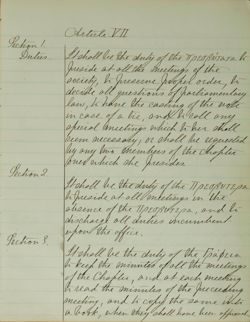 Article VII
Section 1.
Duties.
It shall be the duty of the
preside at all the meetings of the
society, to preserve proper order, to
decide all questions of parliamentary
law, to have the casting of the vote
in case of a tie, and to call any
special meetings which he/her shall
deem necessary, or shall be requested
by any five members of the Chapter
over which she presides.
Section 2.
It shall be the duty of the
to preside at all meetings in the
absence of the and to
discharge all duties incumbent
upon the office.
Section 3.
It shall be the duty of the
to keep the minutes of all the meetings
of the Chapter, and at each meeting
to read the minutes of the preceding
meeting, and to copy the same into
a book, when they shall have been approved